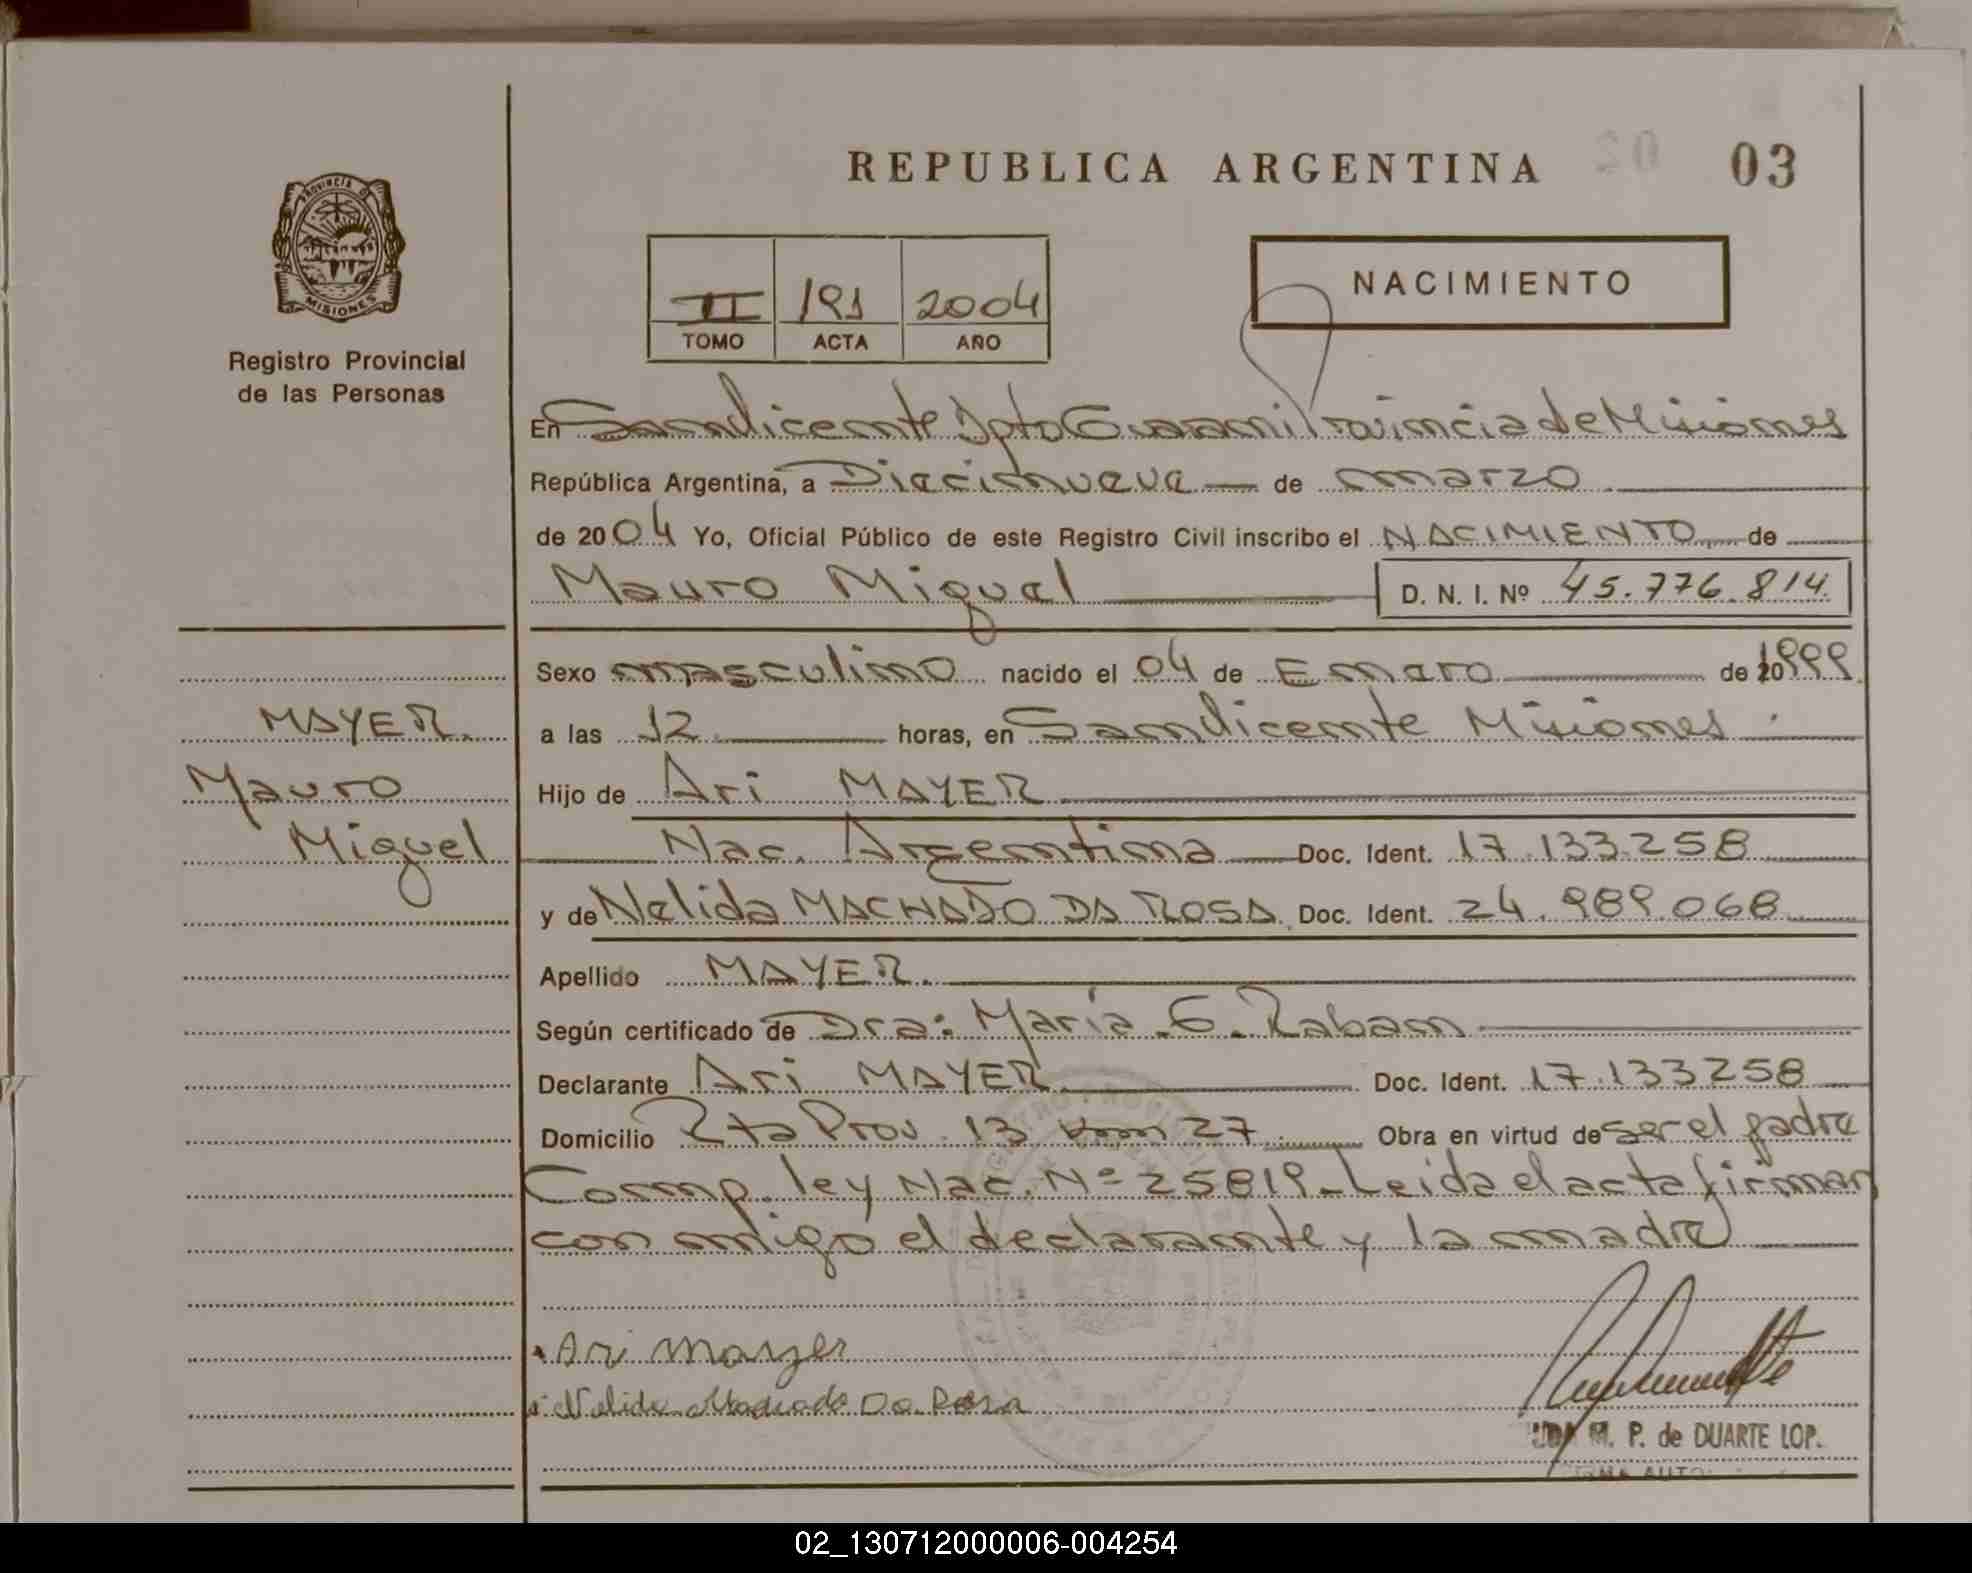 REPUBLICA ARGENTINA 20 03
PROVINCIA DE
MISIONES
Registro Provincial
de las Personas
II 191 2004
TOMO ACTA AÑO
NACIMIENTO
En San Vicente Dpto Guarani Provincia de Misiones
República Argentina, a Diecinueve de marzo
de 2004 Yo, Oficial Público de este Registro Civil inscribo el NACIMIENTO de
Mauro Miguel D. N. I. Nº 45.776.814
Sexo masculino nacido el 04 de Enero de 20 1999
a las 12 horas, en San Vicente Misiones
Hijo de Ari MAYER
Nac. Argentina Doc. Ident. 17.133.258
y de Nelida MACHADO DA ROSA Doc. Ident. 24.989.068
Apellido MAYER
Según certificado de Dra: Maria G. Raban
Declarante Ari MAYER Doc. Ident. 17.133258
Domicilio Rta Prov. 13 km 27 Obra en virtud de ser el padre
Comp. ley Nac. Nº 25819 Leida el acta firman
con migo el declarante y la madre
MAYER
Mauro
Miguel
Ari Mayer
Nelida Machado Da Rosa
M. P. de DUARTE LOP.
02_130712000006-004254